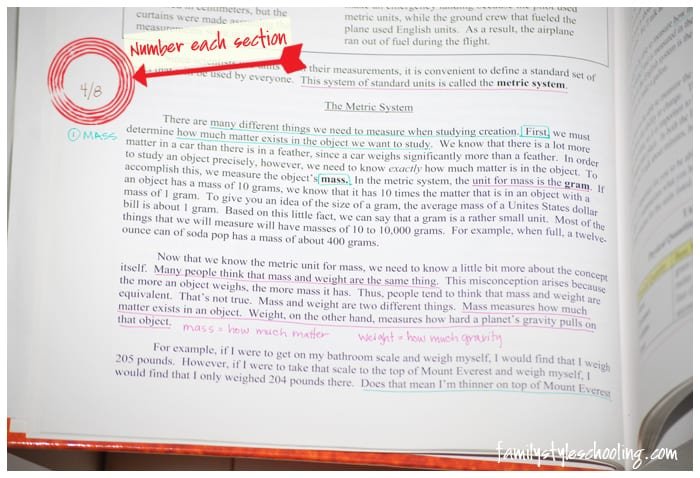 centimeters, but the
curtains were made
measurem
metric units, while the ground crew that fueled the
plane used English units. As a result, the airplane
ran out of fuel during the flight.
Number each section
4/8
their measurements, it is convenient to define a standard set of
be used by everyone. This system of standard units is called the metric system.
The Metric System
There are many different things we need to measure when studying creation. First, we must
① MASS
determine how much matter exists in the object we want to study. We know that there is a lot more
matter in a car than there is in a feather, since a car weighs significantly more than a feather. In order
to study an object precisely, however, we need to know exactly how much matter is in the object. To
accomplish this, we measure the object's mass. In the metric system, the unit for mass is the gram. If
an object has a mass of 10 grams, we know that it has 10 times the matter that is in an object with a
mass of 1 gram. To give you an idea of the size of a gram, the average mass of a Unites States dollar
bill is about 1 gram. Based on this little fact, we can say that a gram is a rather small unit. Most of the
things that we will measure will have masses of 10 to 10,000 grams. For example, when full, a twelve-
ounce can of soda pop has a mass of about 400 grams.
Now that we know the metric unit for mass, we need to know a little bit more about the concept
itself. Many people think that mass and weight are the same thing. This misconception arises because
the more an object weighs, the more mass it has. Thus, people tend to think that mass and weight are
equivalent. That's not true. Mass and weight are two different things. Mass measures how much
matter exists in an object. Weight, on the other hand, measures how hard a planet's gravity pulls on
that object. mass = how much matter weight = how much gravity
For example, if I were to get on my bathroom scale and weigh myself, I would find that I weigh
205 pounds. However, if I were to take that scale to the top of Mount Everest and weigh myself, I
would find that I only weighed 204 pounds there. Does that mean I'm thinner on top of Mount Everest
familystyleschooling.com